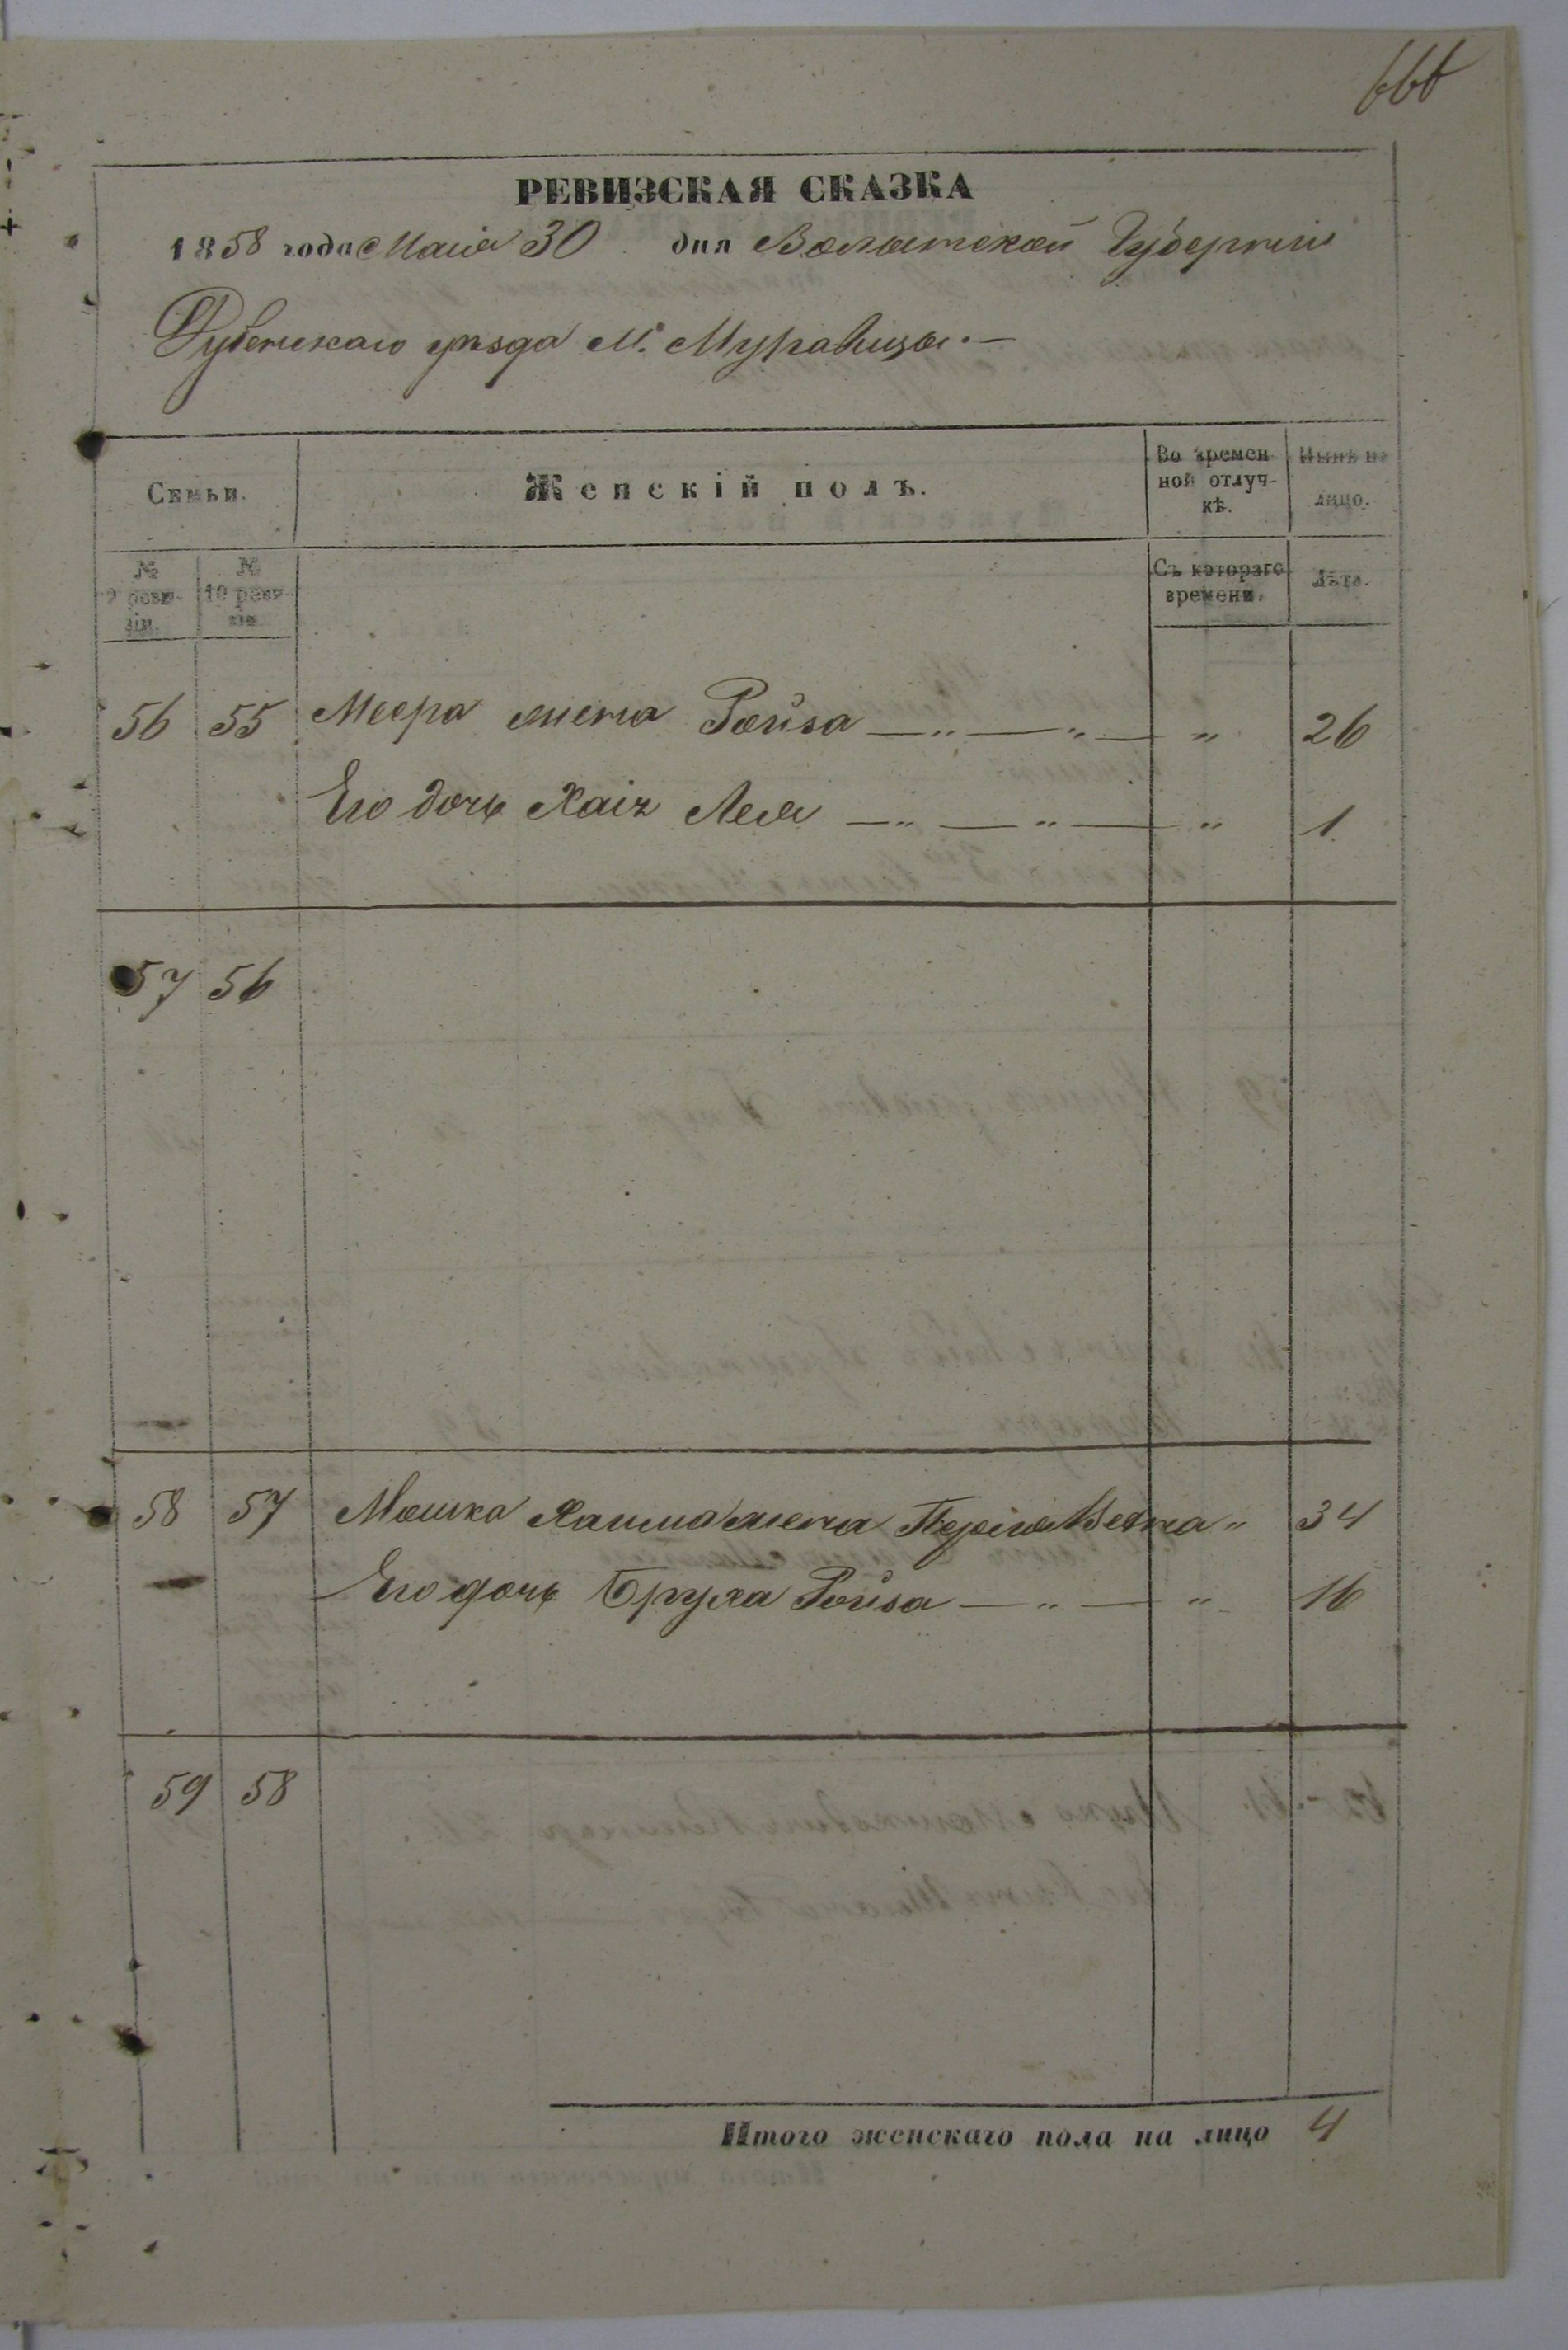 666
РЕВИЗСКАЯ СКАЗКА
1858 года Маія 30 дня Волынской Губерніи
Дубенскаго уѣзда М. Муравицы.—
Семьи.
Женскій полъ.
Во времен-
ной отлуч-
кѣ.
Нынѣ на
лицо.
№
9 реви-
зіи.
№
10 реви-
зіи.
Съ котораго
времени.
Лѣта.
56 55 Меера жена Ройза — „ — „ — „ 26
Его дочь Хаія Лея — „ — „ — „ 1
57 56
58 57 Мошка Хаима жена Перля „ 34
Его дочь Бруха Ройза — „ — „ 16
59 58
Итого женскаго пола на лицо 4